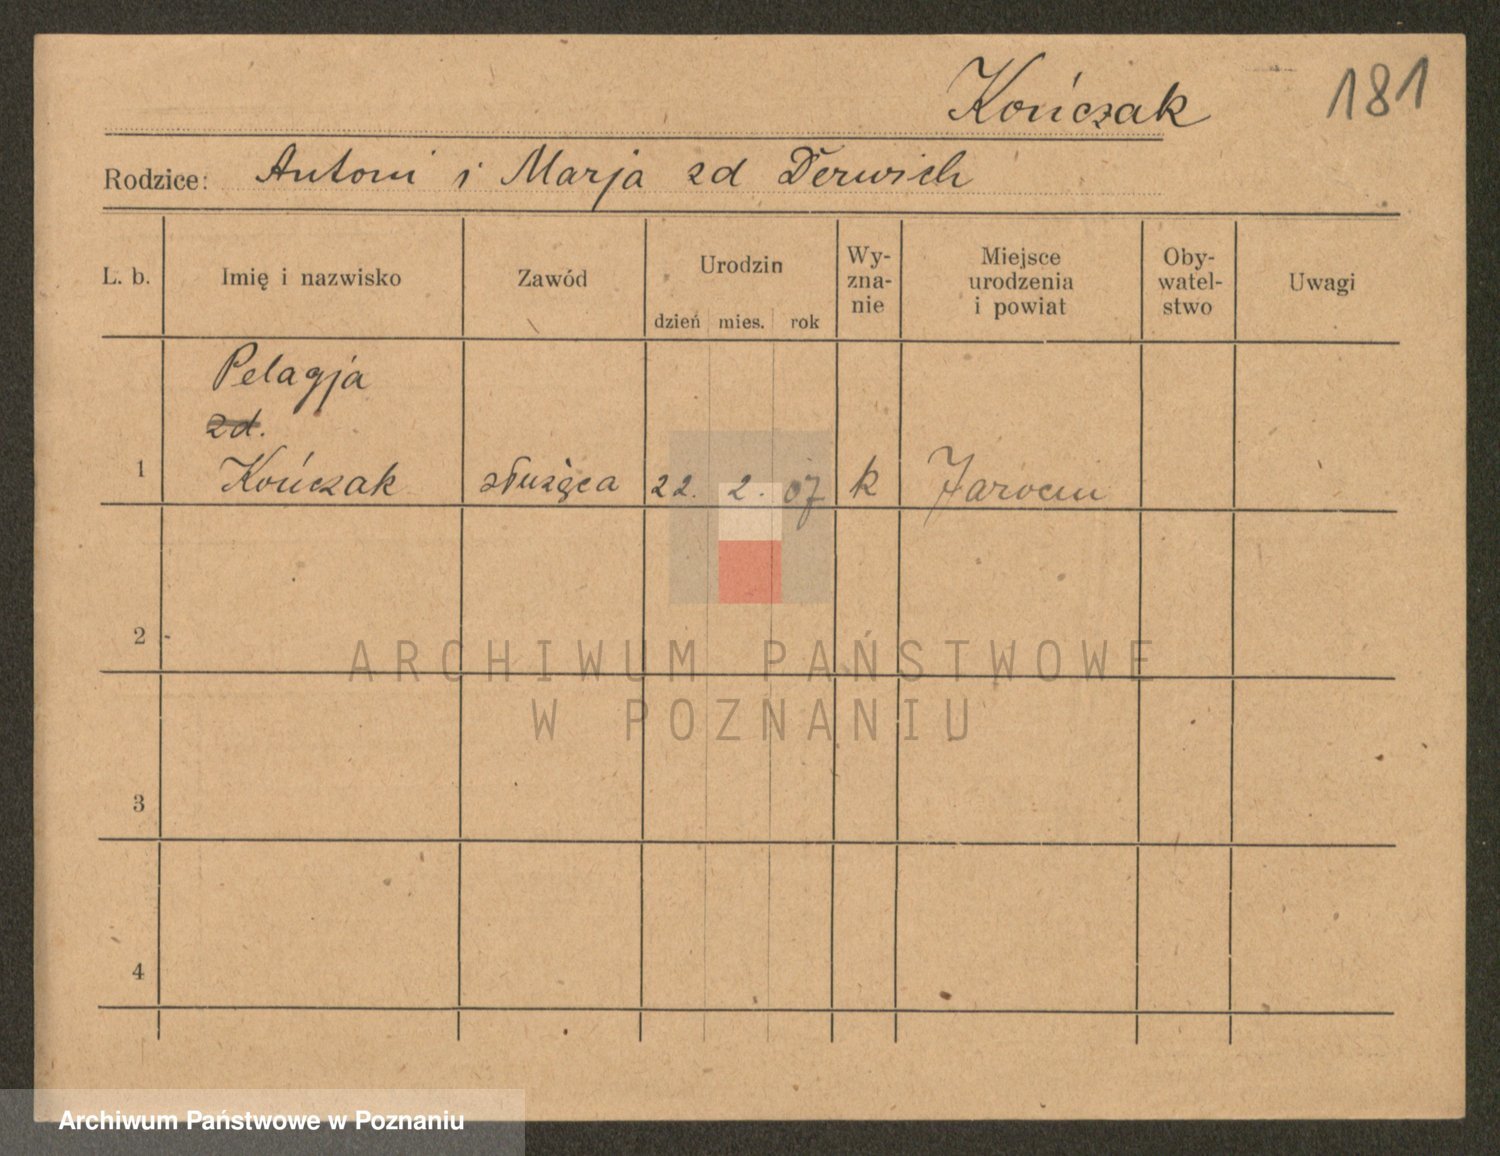 Kończak 181
Rodzice: Antoni i Marja zd Derwich
L. b. Imię i nazwisko Zawód Urodzin Wy- Miejsce Oby- Uwagi
zna- urodzenia watel-
nie i powiat stwo
dzień mies. rok
Pelagja
zd.
1 Kończak służąca 22. 2. 07 k Jarocin
2
ARCHIWUM PAŃSTWOWE
W POZNANIU
3
4
Archiwum Państwowe w Poznaniu